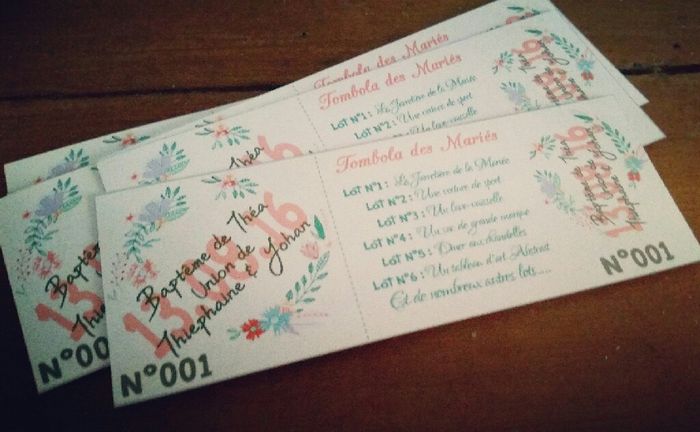 Tombola des Mariés
Tombola des Mariés
LOT N°1 : La Jarretière de la Mariée
LOT N°2 : Une voiture de sport
Un lave vaisselle
Théa
13.08.16
Tombola des Mariés
LOT N°1 : La Jarretière de la Mariée
LOT N°2 : Une voiture de sport
LOT N°3 : Un lave vaisselle
LOT N°4 : Un sac de grande marque
LOT N°5 : Diner aux chandelles
LOT N°6 : Un tableau d'art Abstrait
Et de nombreux autres lots.....
N°001
Baptême de Théa
Union de
Thiephaine & Yohan
13.08.16
N°001
Baptême de Théa
13.08.16
N°00